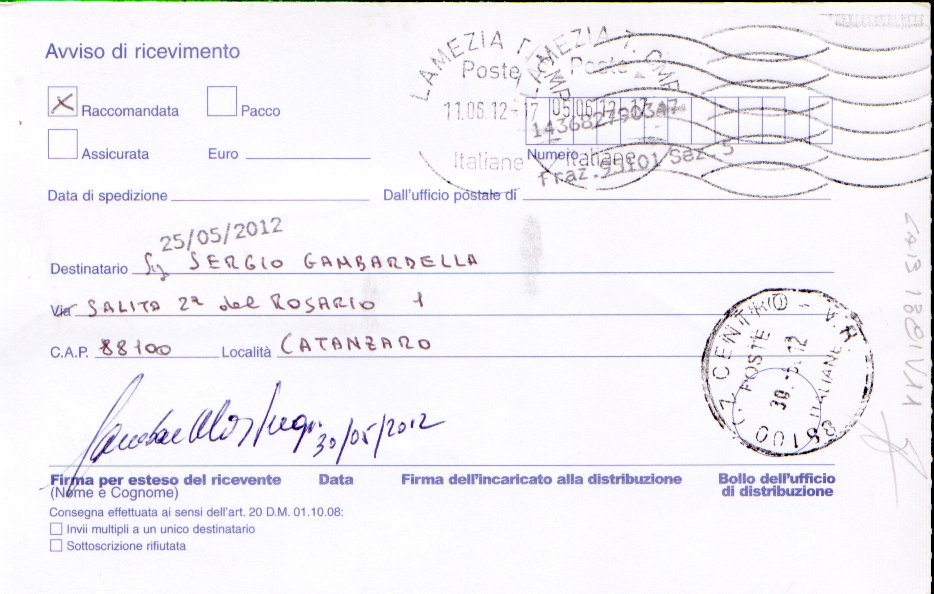 Avviso di ricevimento
LAMEZIA T. CMP
LAMEZIA T. CMP
Poste
Poste
Raccomandata
Pacco
11.06.12-17
05.06.12-17
143682790347
Assicurata
Euro
Italiane
Numero
Italiane
Fraz.55101 Sez.5
Data di spedizione
Dall'ufficio postale di
25/05/2012
Destinatario Sig SERGIO GAMBARDELLA
Via SALITA 2ª del ROSARIO 1
C.A.P. 88100 Località CATANZARO
CENTRO - V.R.
POSTE
ITALIANE
88100
30/05/2012
Firma per esteso del ricevente
Data
Firma dell'incaricato alla distribuzione
Bollo dell'ufficio
di distribuzione
(Nome e Cognome)
Consegna effettuata ai sensi dell'art. 20 D.M. 01.10.08:
Invii multipli a un unico destinatario
Sottoscrizione rifiutata